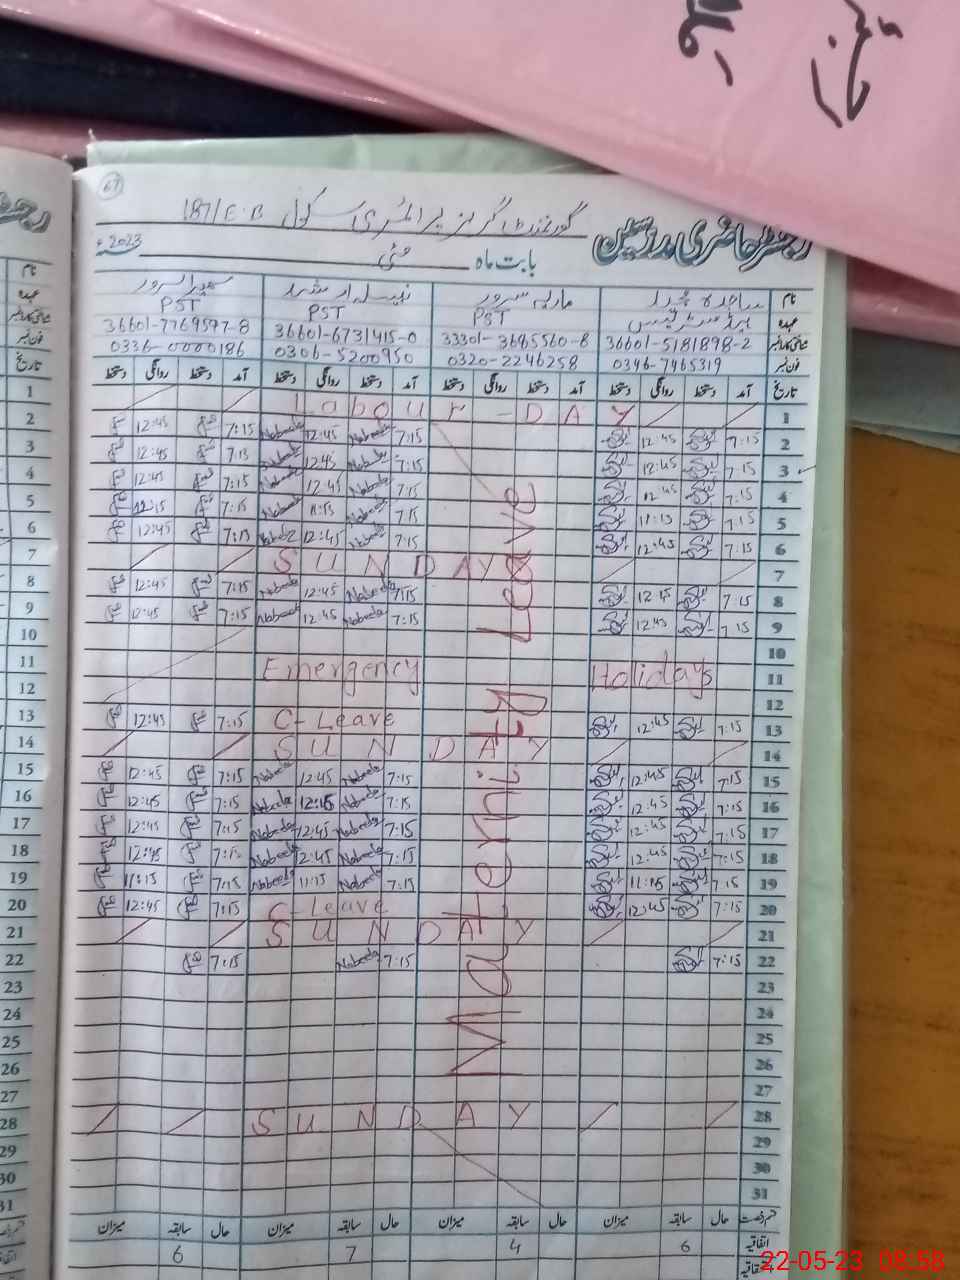 67
گورنمنٹ گرلز پرائمری سکول 187/E.B
رجسٹر حاضری مدرسین
بابت ماہ مئی 2023ء
نام ساجدہ مجید ماریہ سرور نبیلہ ارشد سمیرا سرور
عہدہ ہیڈ مسٹریس PST PST PST
شناختی کارڈ نمبر 36601-5181898-2 33301-3685560-8 36601-6731415-0 36601-7769577-8
فون نمبر 0346-7465319 0320-2246258 0306-5200950 0336-0000186
تاریخ آمد دستخط روانگی دستخط آمد دستخط روانگی دستخط آمد دستخط روانگی دستخط آمد دستخط روانگی دستخط
1 Labour - DAY 1
2 12:45 7:15 Nabeela 12:45 Nabeela 7:15 12:45 7:15 2
3 12:45 7:15 Nabeela 12:45 Nabeela 7:15 12:45 7:15 3
4 12:45 7:15 Nabeela 12:45 Nabeela 7:15 12:45 7:15 4
5 7:15 Nabeela 11:15 Nabeela 7:15 11:15 7:15 5
6 12:45 7:15 Nabeela 12:45 Nabeela 7:15 12:45 7:15 6
7 SUNDAY 7
8 12:45 7:15 Nabeela 12:45 Nabeela 7:15 12:45 7:15 8
9 12:45 7:15 Nabeela 12:45 Nabeela 7:15 12:45 7:15 9
10 10
11 Emergency Holidays 11
12 12
13 12:45 7:15 C-Leave 12:45 7:15 13
14 SUNDAY 14
15 12:45 7:15 Nabeela 12:45 Nabeela 7:15 12:45 7:15 15
16 12:45 7:15 Nabeela 12:45 Nabeela 7:15 12:45 7:15 16
17 12:45 7:15 Nabeela 12:45 Nabeela 7:15 12:45 7:15 17
18 12:45 7:15 Nabeela 12:45 Nabeela 7:15 12:45 7:15 18
19 11:15 7:15 Nabeela 11:15 Nabeela 7:15 11:15 7:15 19
20 12:45 7:15 C-Leave 12:45 7:15 20
21 SUNDAY 21
22 7:15 Nabeela 7:15 7:15 22
23 23
24 24
25 25
26 26
27 27
28 SUNDAY 28
29 29
30 30
31 31
Maternity Leave
قسم رخصت حال سابقہ میزان حال سابقہ میزان حال سابقہ میزان حال سابقہ میزان
اتفاقیہ 6 4 7 6
22-05-23 08:58